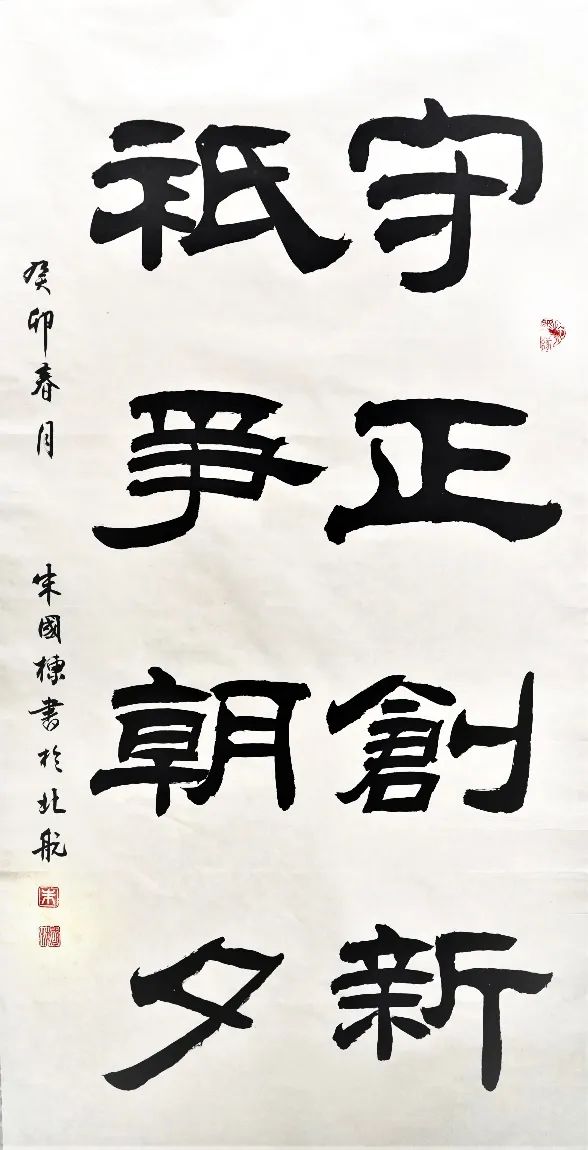 守正創新
祇爭朝夕
癸卯春月 朱國棟書於北航
朱